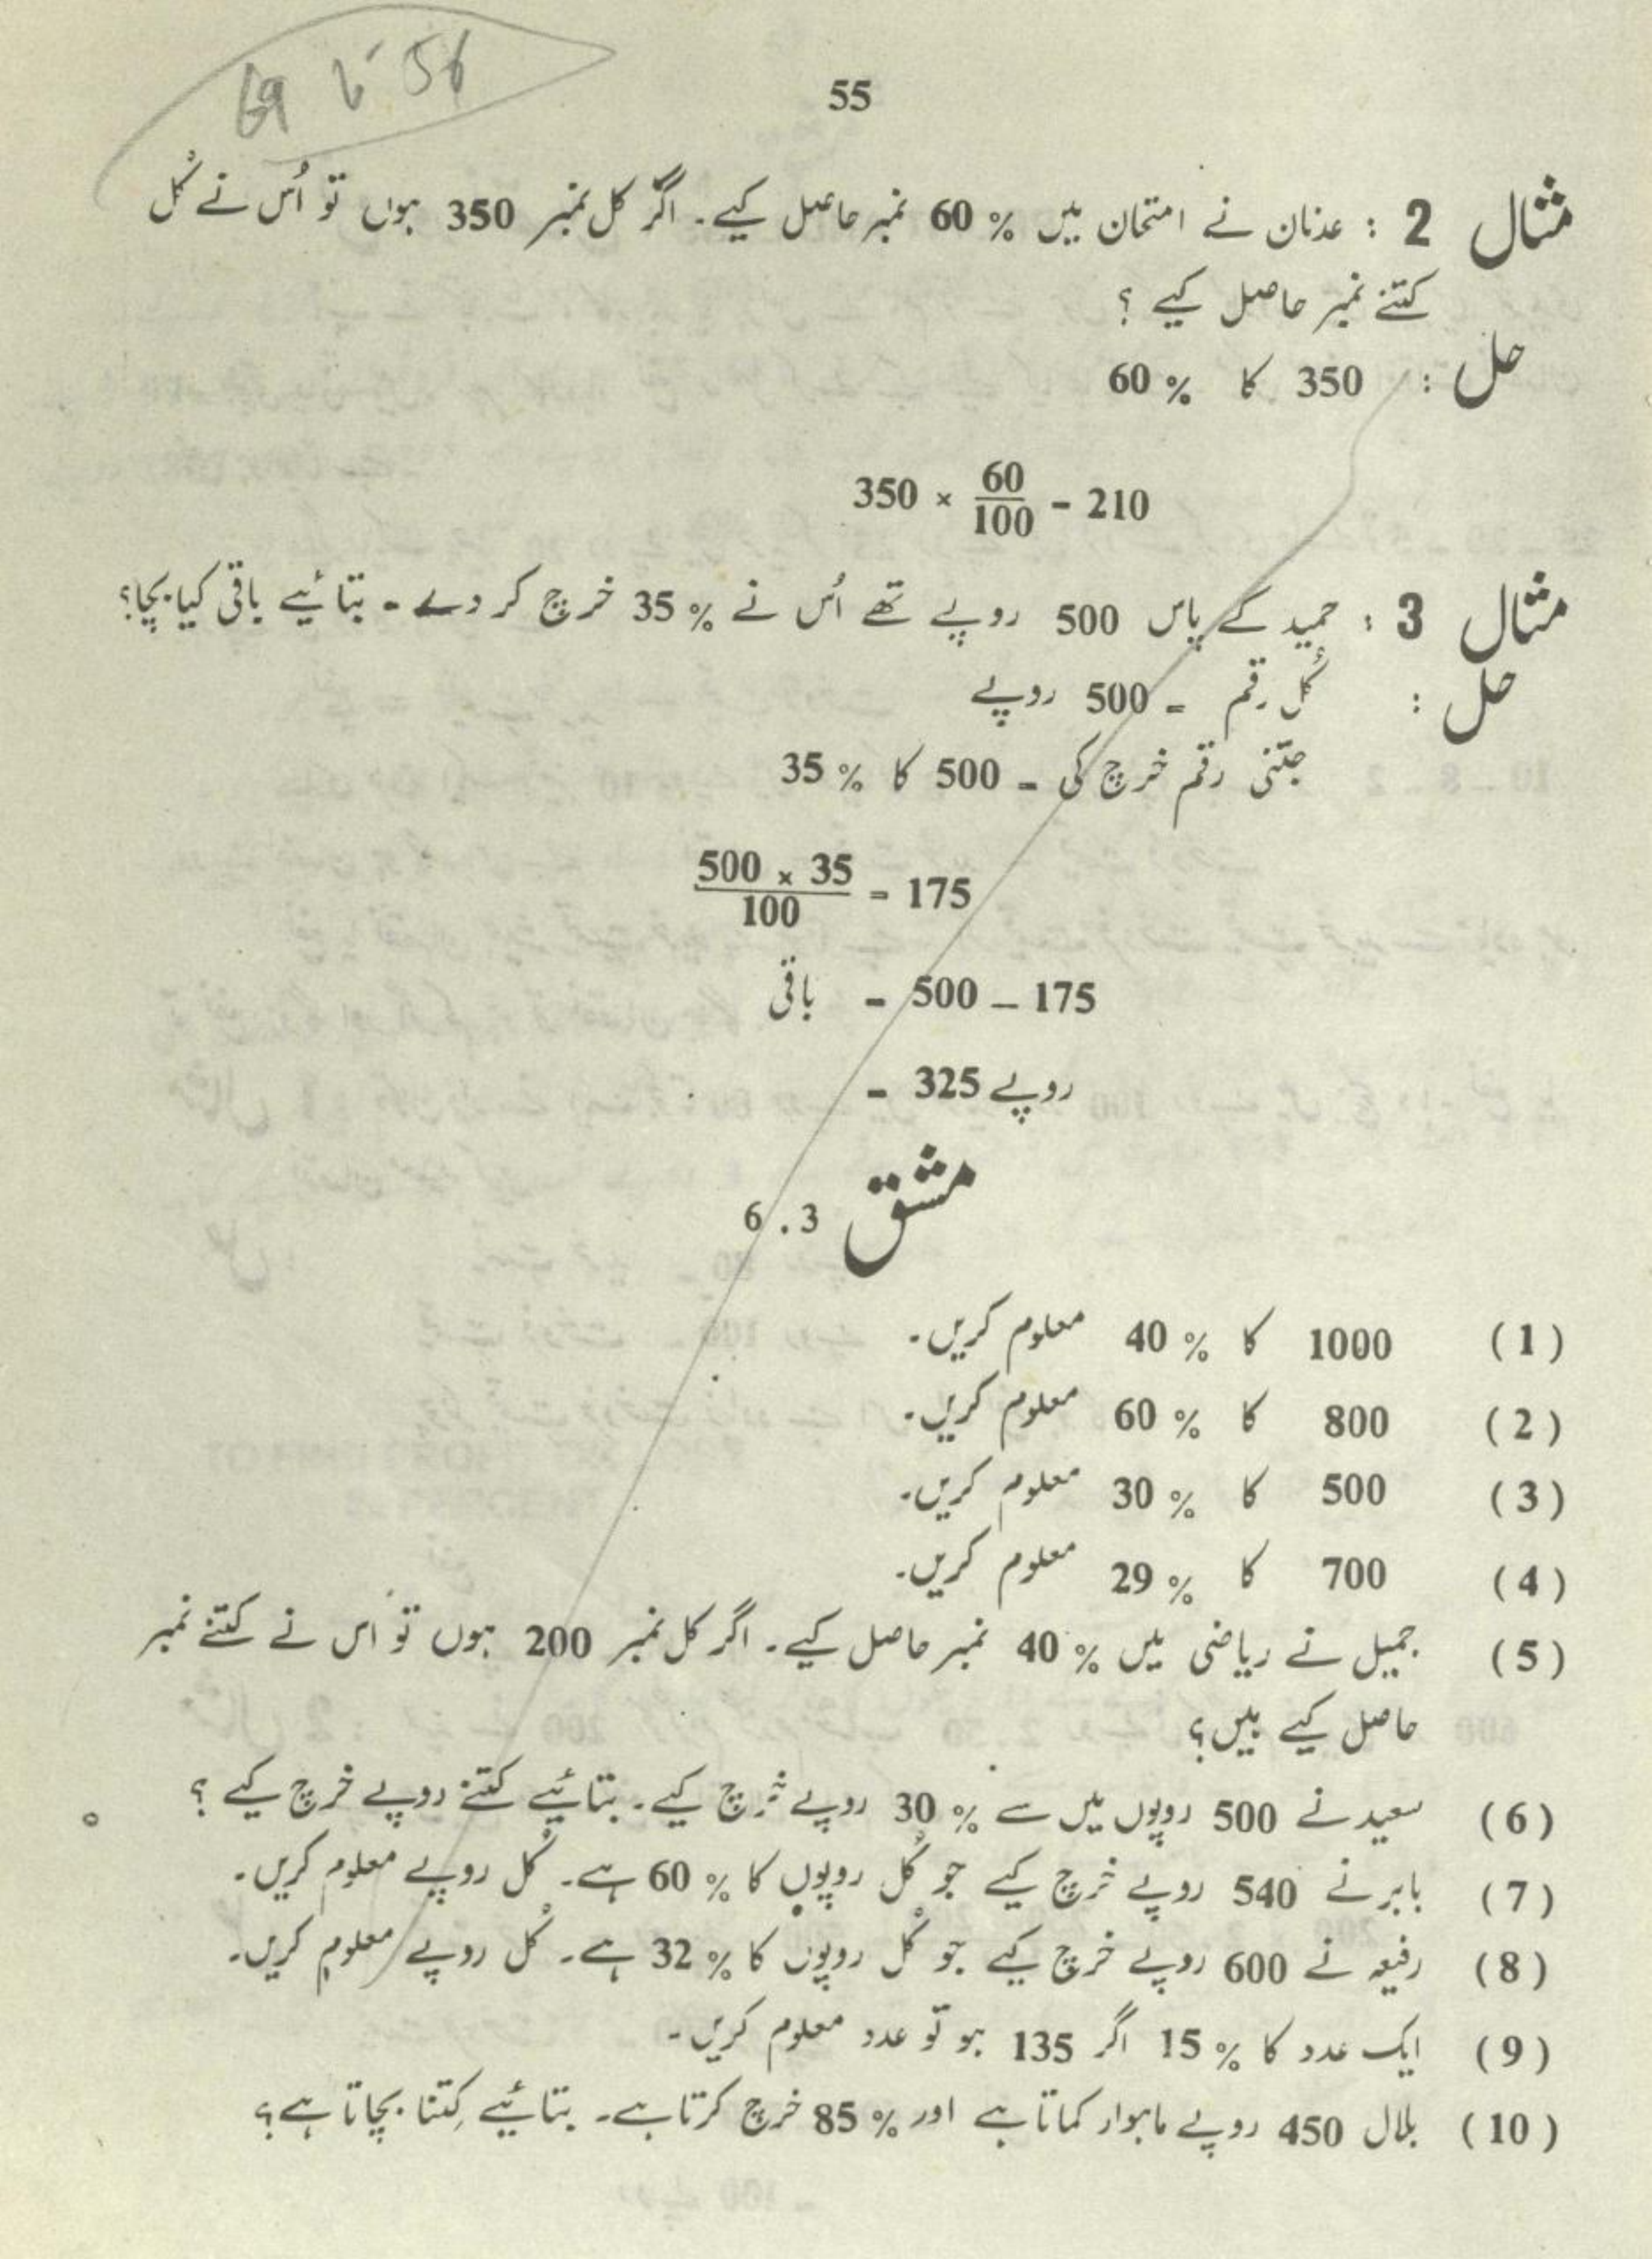 69 تا 56
55
مثال 2 : عدنان نے امتحان میں % 60 نمبر حاصل کیے۔ اگر کل نمبر 350 ہوں تو اُس نے کُل
کتنے نمبر حاصل کیے ؟
حل : 350 کا % 60
350 × 60/100 = 210
مثال 3 : حمید کے پاس 500 روپے تھے اُس نے % 35 خرچ کر دے ۔ بتائیے باقی کیا بچا؟
حل : کُل رقم = 500 روپے
جتنی رقم خرچ کی = 500 کا % 35
500 × 35/100 = 175
باقی = 500 – 175
= 325 روپے
مشق 6.3
(1) 1000 کا % 40 معلوم کریں۔
(2) 800 کا % 60 معلوم کریں۔
(3) 500 کا % 30 معلوم کریں۔
(4) 700 کا % 29 معلوم کریں۔
(5) جمیل نے ریاضی میں % 40 نمبر حاصل کیے۔ اگر کل نمبر 200 ہوں تو اس نے کتنے نمبر
حاصل کیے ہیں؟
(6) سعید نے 500 روپوں میں سے % 30 روپے خرچ کیے۔ بتائیے کتنے روپے خرچ کیے ؟
(7) بابر نے 540 روپے خرچ کیے جو کُل روپوں کا % 60 ہے۔ کُل روپے معلوم کریں۔
(8) رفیعہ نے 600 روپے خرچ کیے جو کُل روپوں کا % 32 ہے۔ کُل روپے معلوم کریں۔
(9) ایک عدد کا % 15 اگر 135 ہو تو عدد معلوم کریں۔
(10) بلال 450 روپے ماہوار کماتا ہے اور % 85 خرچ کرتا ہے۔ بتائیے کِتنا بچاتا ہے؟